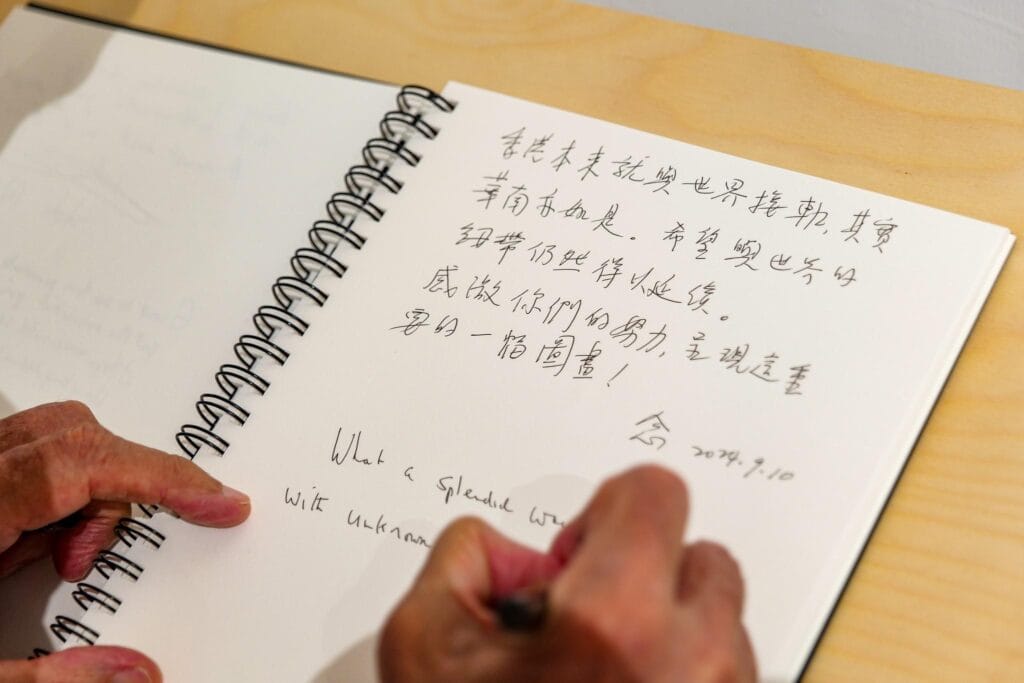 香港本來就與世界接軌，其實
華南亦如是。希望與世界的
紐帶仍然得以延續。
感激你們的努力，呈現這重
要的一幅圖畫！
念 2024.9.10
What a splendid way
with unknown